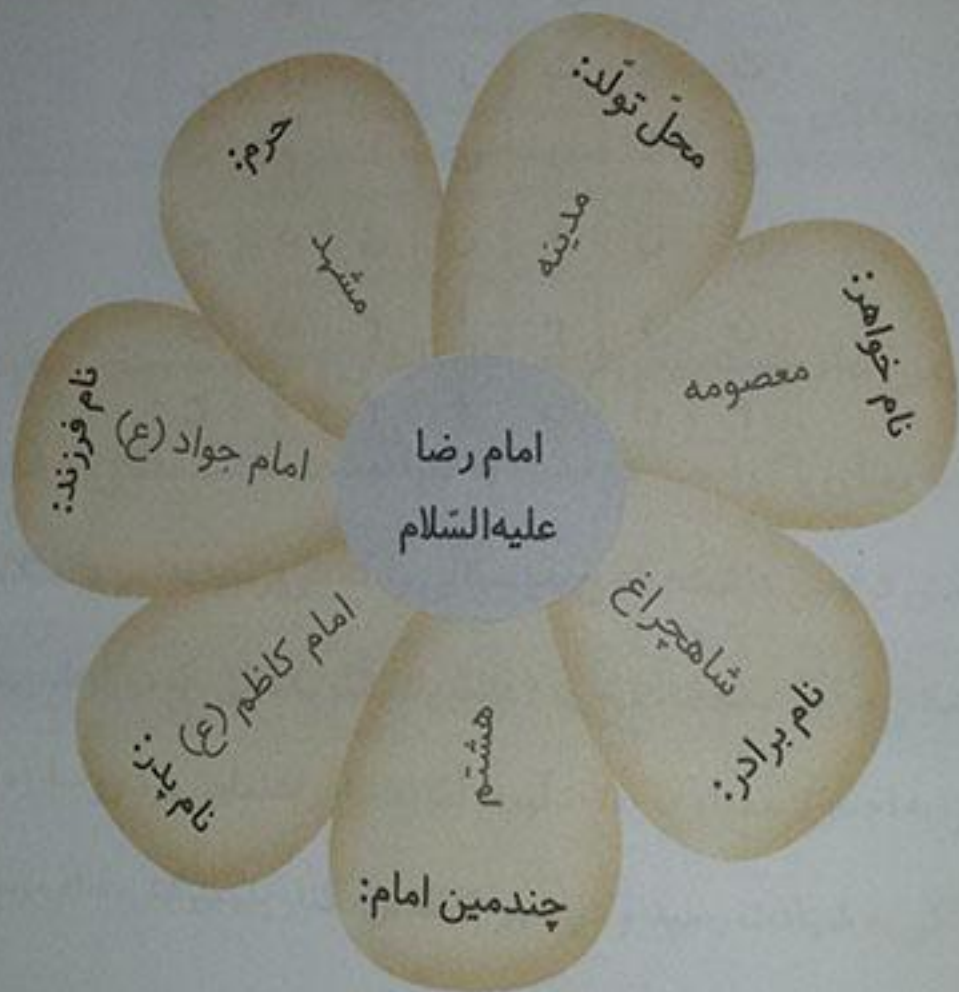 امام رضا
علیه‌السّلام
محلّ تولّد:
مدینه
نام خواهر:
معصومه
نام برادر:
شاهچراغ
چندمین امام:
هشتم
نام پدر:
امام کاظم (ع)
نام فرزند:
امام جواد (ع)
حرم:
مشهد